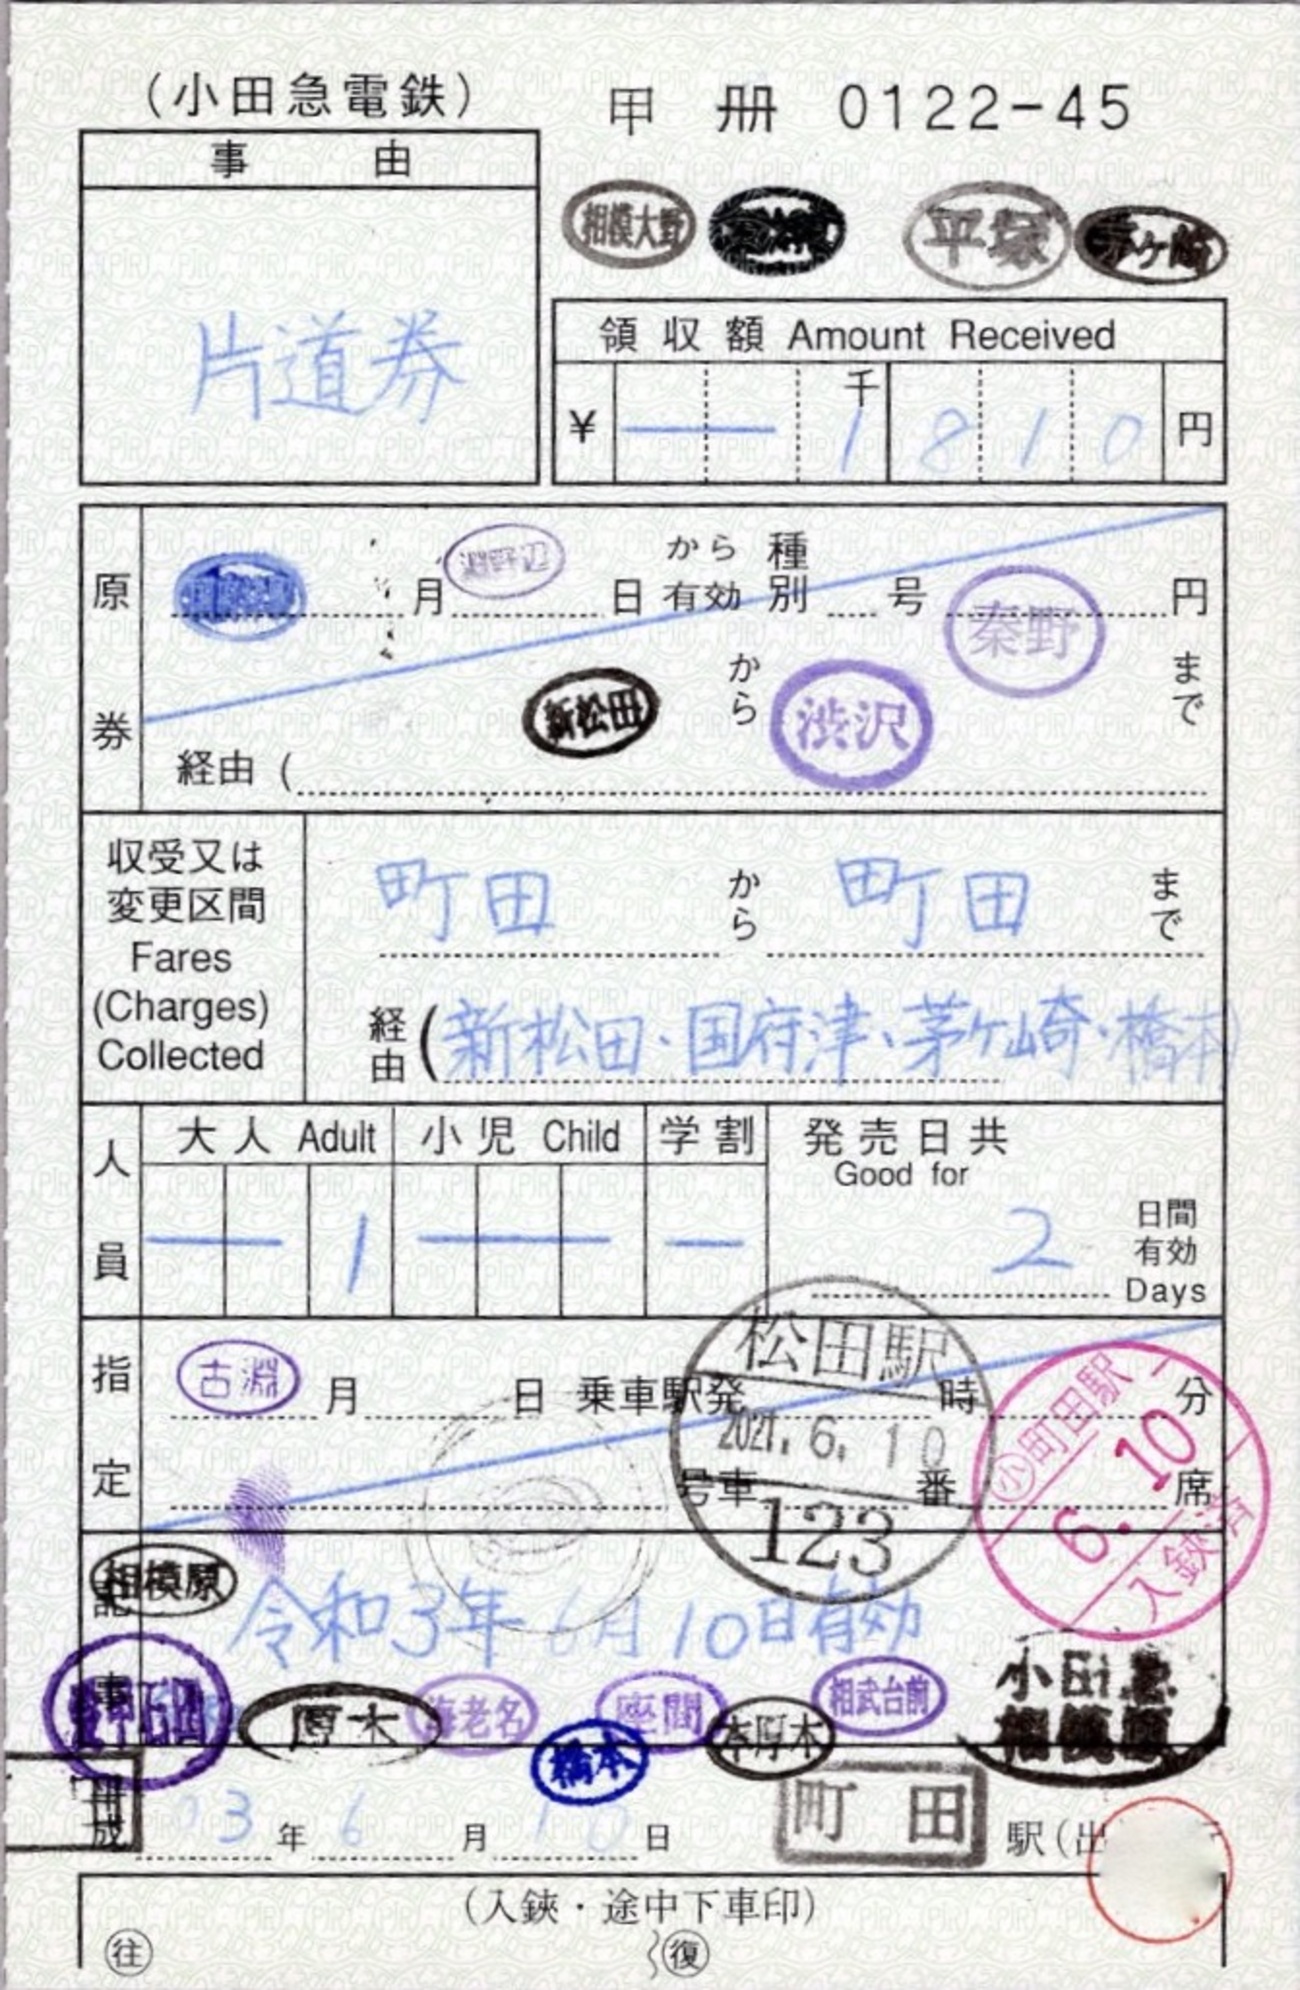 (小田急電鉄)
甲 冊 0122-45
事 由
片道券
相模大野
平塚
茅ヶ崎
領収額 Amount Received
千
¥ 1 8 1 0 円
原券
月 淵野辺 日 から有効 種別 号 円
秦野
新松田 から 渋沢 まで
経由 (
収受又は
変更区間
Fares
(Charges)
Collected
町田 から 町田 まで
経由 (新松田・国府津・茅ケ崎・橋本
人員
大人 Adult 小児 Child 学割
発売日共
Good for
1
2 日間
有効
Days
指定
古淵 月 日 乗車駅発 時 分
号車 番 席
松田駅
2021. 6. 10
123
小 町田駅
6. 10
入鋏済
記事
相模原
令和3年6月10日有効
愛甲石田
厚木
海老名
座間
相武台前
橋本
本厚木
小田急
相模原
03年 6月 10日
町田 駅(出
(入鋏・途中下車印)
往 復